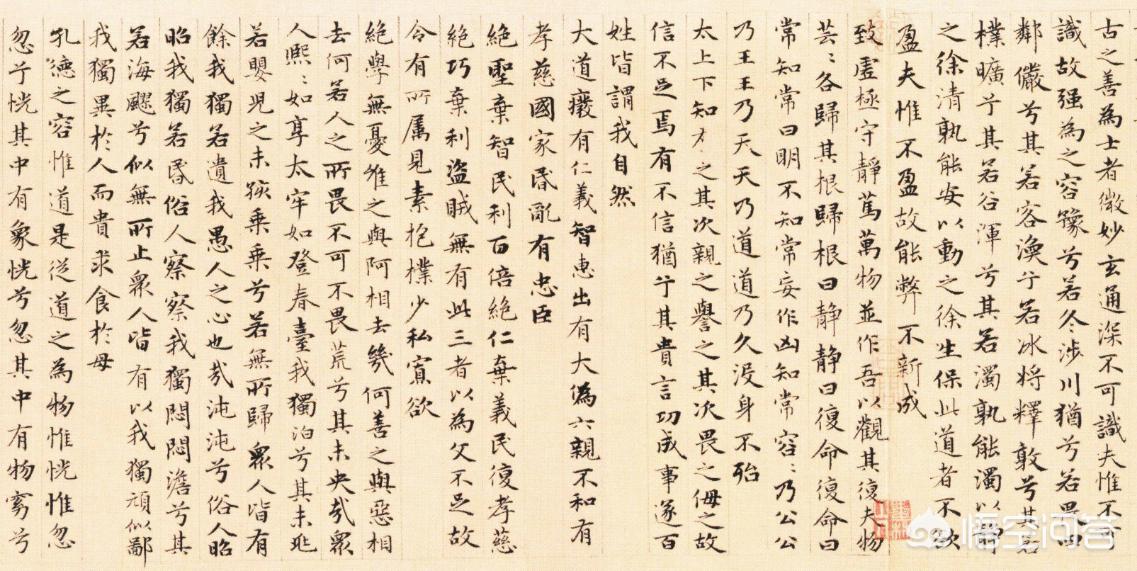 古之善為士者微妙玄通深不可識夫惟不可
識故强為之容豫兮若冬涉川猶兮若畏四
鄰儼兮其若容渙兮若冰將釋敦兮其若
樸曠兮其若谷渾兮其若濁孰能濁以靜
之徐清孰能安以動之徐生保此道者不欲
盈夫惟不盈故能弊不新成
致虛極守靜篤萬物並作吾以觀其復夫物
芸〻各歸其根歸根曰靜靜曰復命復命曰
常知常曰明不知常妄作凶知常容〻乃公公
乃王王乃天天乃道道乃久没身不殆
太上下知有之其次親之譽之其次畏之侮之故
信不足焉有不信猶兮其貴言功成事遂百
姓皆謂我自然
大道廢有仁義智惠出有大偽六親不和有
孝慈國家昏亂有忠臣
絕聖棄智民利百倍絕仁棄義民復孝慈
絕巧棄利盜賊無有此三者以為文不足故
令有所属見素抱樸少私寡欲
絕學無憂唯之與阿相去幾何善之與惡相
去何若人之所畏不可不畏荒兮其未央哉眾
人熙〻如享太牢如登春臺我獨泊兮其未兆
若嬰兒之未孩乘乘兮若無所歸眾人皆有
餘我獨若遺我愚人之心也哉沌沌兮俗人昭
昭我獨若昏俗人察察我獨悶悶澹兮其
若海飂兮似無所止眾人皆有以我獨頑似鄙
我獨異於人而貴求食於母
孔德之容惟道是從道之為物惟恍惟忽
忽兮恍其中有象恍兮忽其中有物窈兮
悟空问答